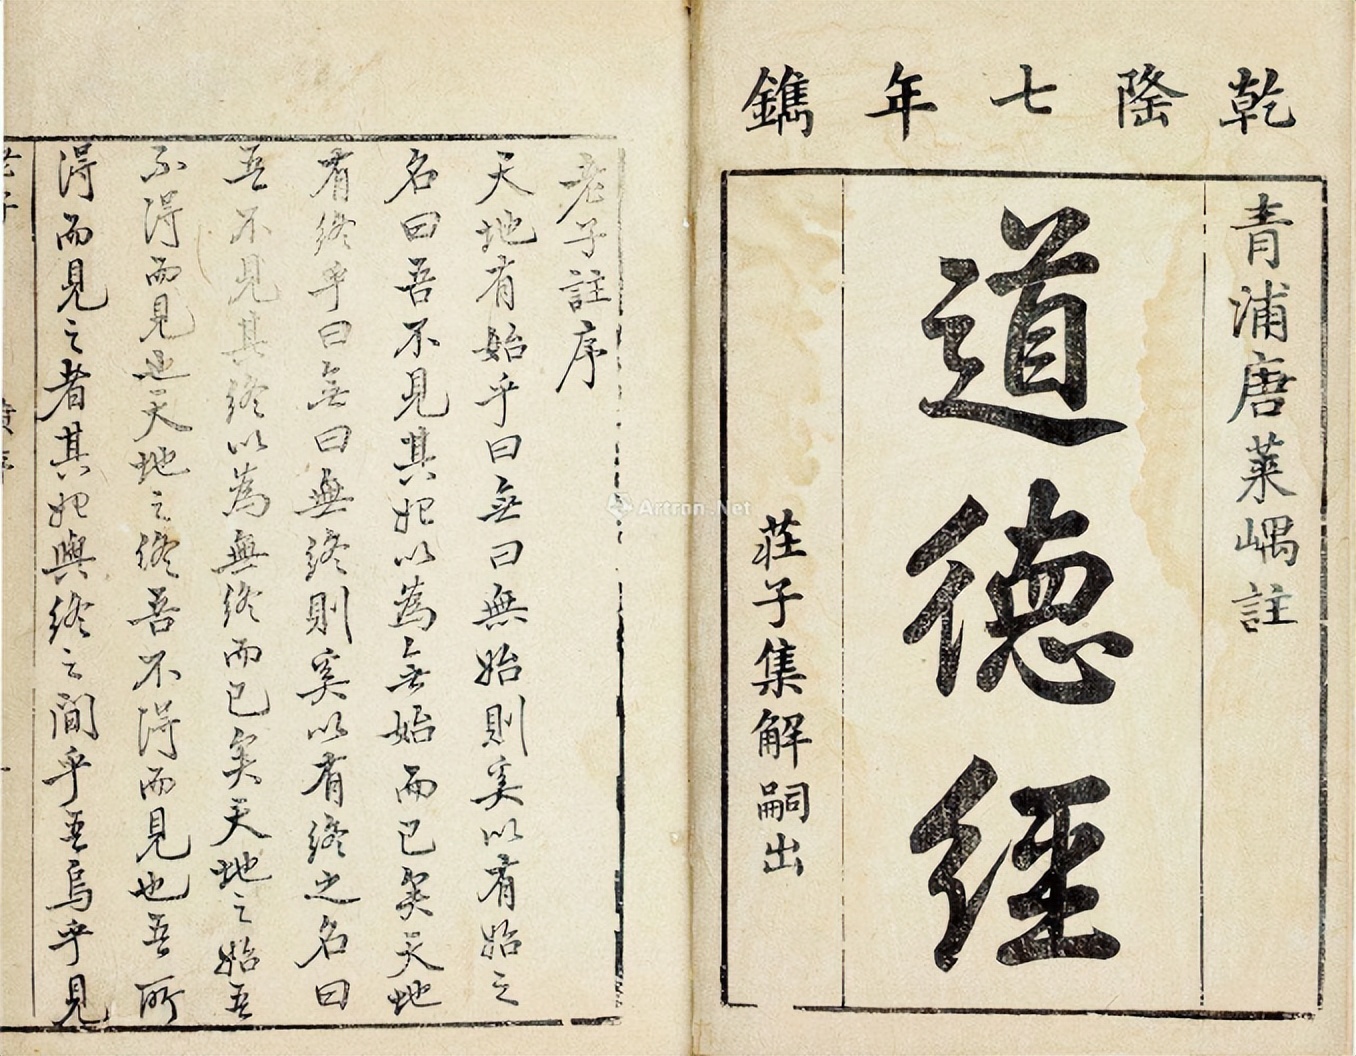 乾隆七年鐫
青浦唐萊嵎註
道德經
莊子集解嗣出
老子註序
天地有始乎曰無曰無始則奚以有始之
名曰吾不見其始以為無始而已矣天地
有終乎曰無曰無終則奚以有終之名曰
吾不見其終以為無終而已矣天地之始吾
不得而見也天地之終吾不得而見也吾所
得而見之者其始與終之間乎吾烏乎見
老子
Artron.Net